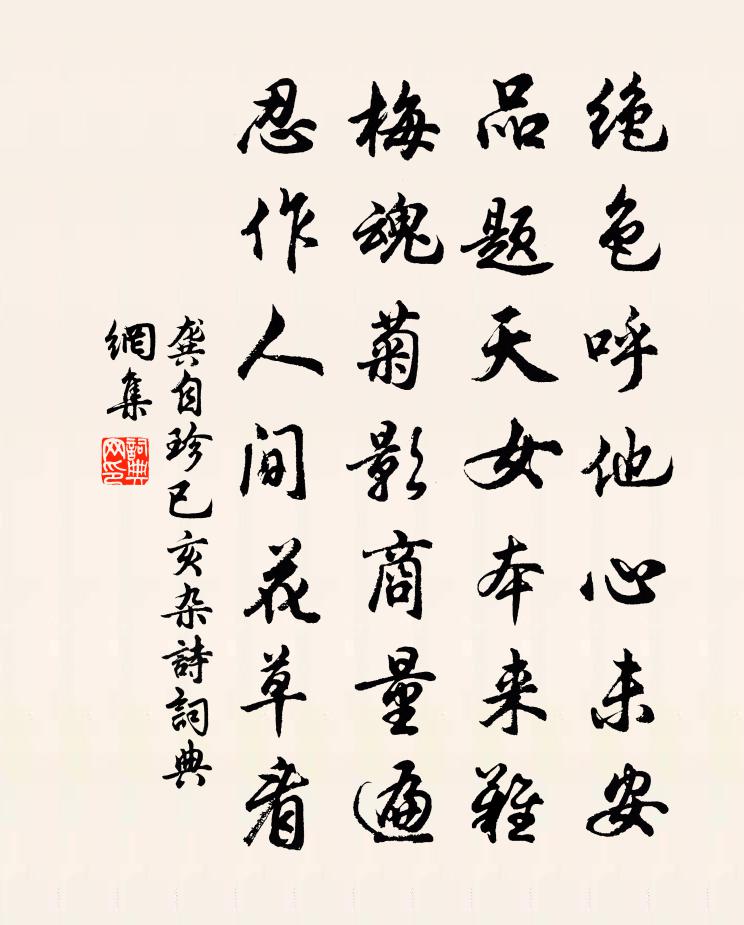 绝色呼他心未安
品题天女本来难
梅魂菊影商量遍
忍作人间花草看
龚自珍己亥杂詩詞典
網集
詞典
网印